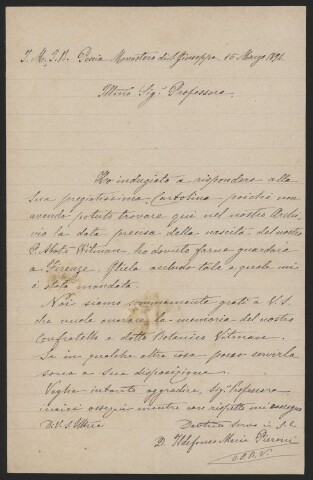 I. M. I. B. Pescia Monastero di S. Giuseppe 15 Marzo 1891.
Illmo Sig. Professore,
Ho indugiato a rispondere alla
Sua pregiatissima Cartolina perchè non
avendo potuto trovare qui nel nostro Archi-
vio la data precisa della nascita del nostro
P. Abate Vitman, ho dovuto farne guardare
a Firenze. Gliela accludo tale e quale mi
è stata mandata.
Noi siamo sommamente grati a V. S.
che vuole onorare la memoria del nostro
Confratello e dotto Botanico Vitman.
Se in qualche altra cosa posso servirla
sono a sua disposizione.
Voglia intanto aggradire, Sig. Professore
i miei ossequi mentre con rispetto mi confermo
Di V. S. Illma
Devotmo Servo in G. C.
D. Ildefonso Maria Pieroni